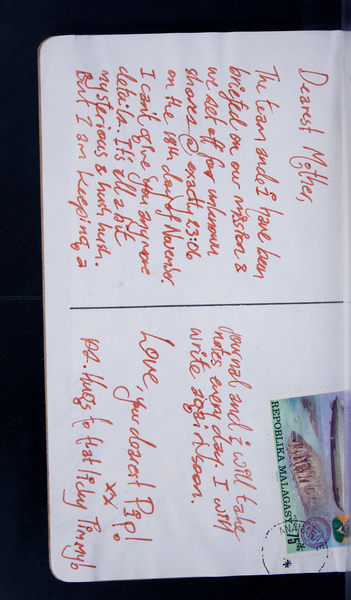 Dearest Mother,
The team and I have been
briefed on our mission &
we set off for unknown
shores @ exactly 23:06
on the 18th day of November.
I can't give you any more
details. It's all a bit
mysterious & hush hush.
But I am keeping a
journal and I will take
notes every day. I will
write again soon.
Love, your dearest Pip!
xx
P.S. Hugs for that lil' guy Timmy!
REPOBLIKA MALAGASY
75